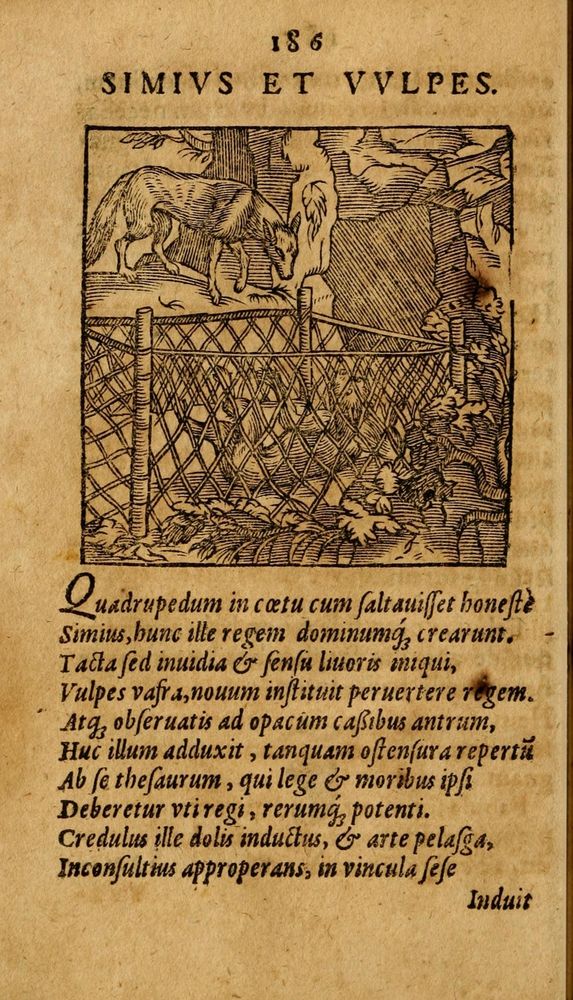 186
SIMIVS ET VVLPES.
Quadrupedum in cœtu cum ſaltauiſſet honeſtè
Simius, hunc ille regem dominumq́ꝫ crearunt.
Tacta ſed inuidia & ſenſu liuoris iniqui,
Vulpes vafra, nouum inſtituit peruertere regem.
Atqꝫ obſeruatis ad opacum caßibus antrum,
Huc illum adduxit, tanquam oſtenſura repertũ
Ab ſe theſaurum, qui lege & moribus ipſi
Deberetur vti regi, rerumq́ꝫ potenti.
Credulus ille dolis inductus, & arte pelaſga,
Inconſultius approperans, in vincula ſeſe
Induit